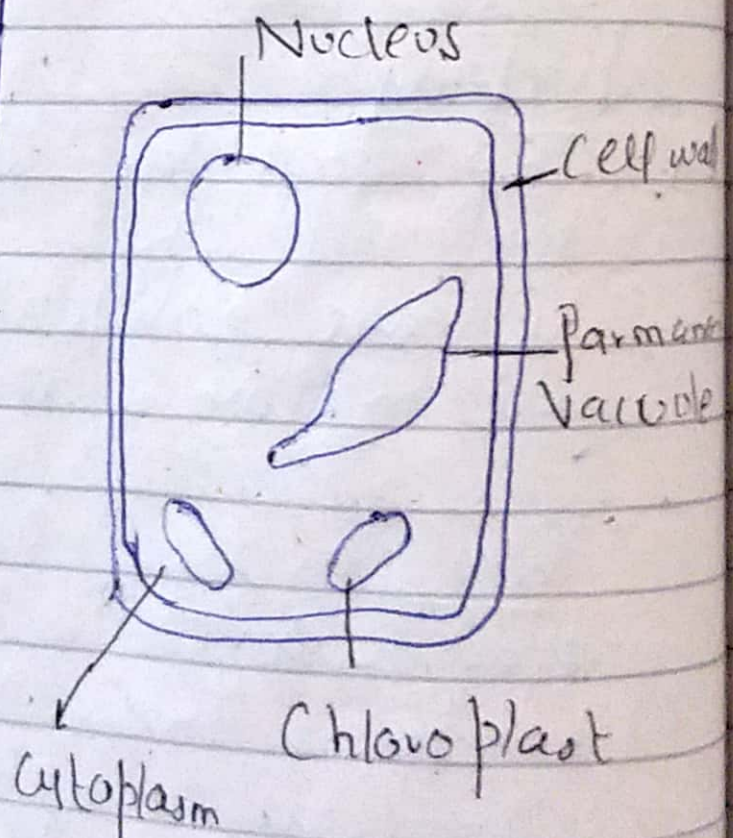 Nucleus
Cell wal
Parman
Vacuole
Chloroplast
Cytoplasm